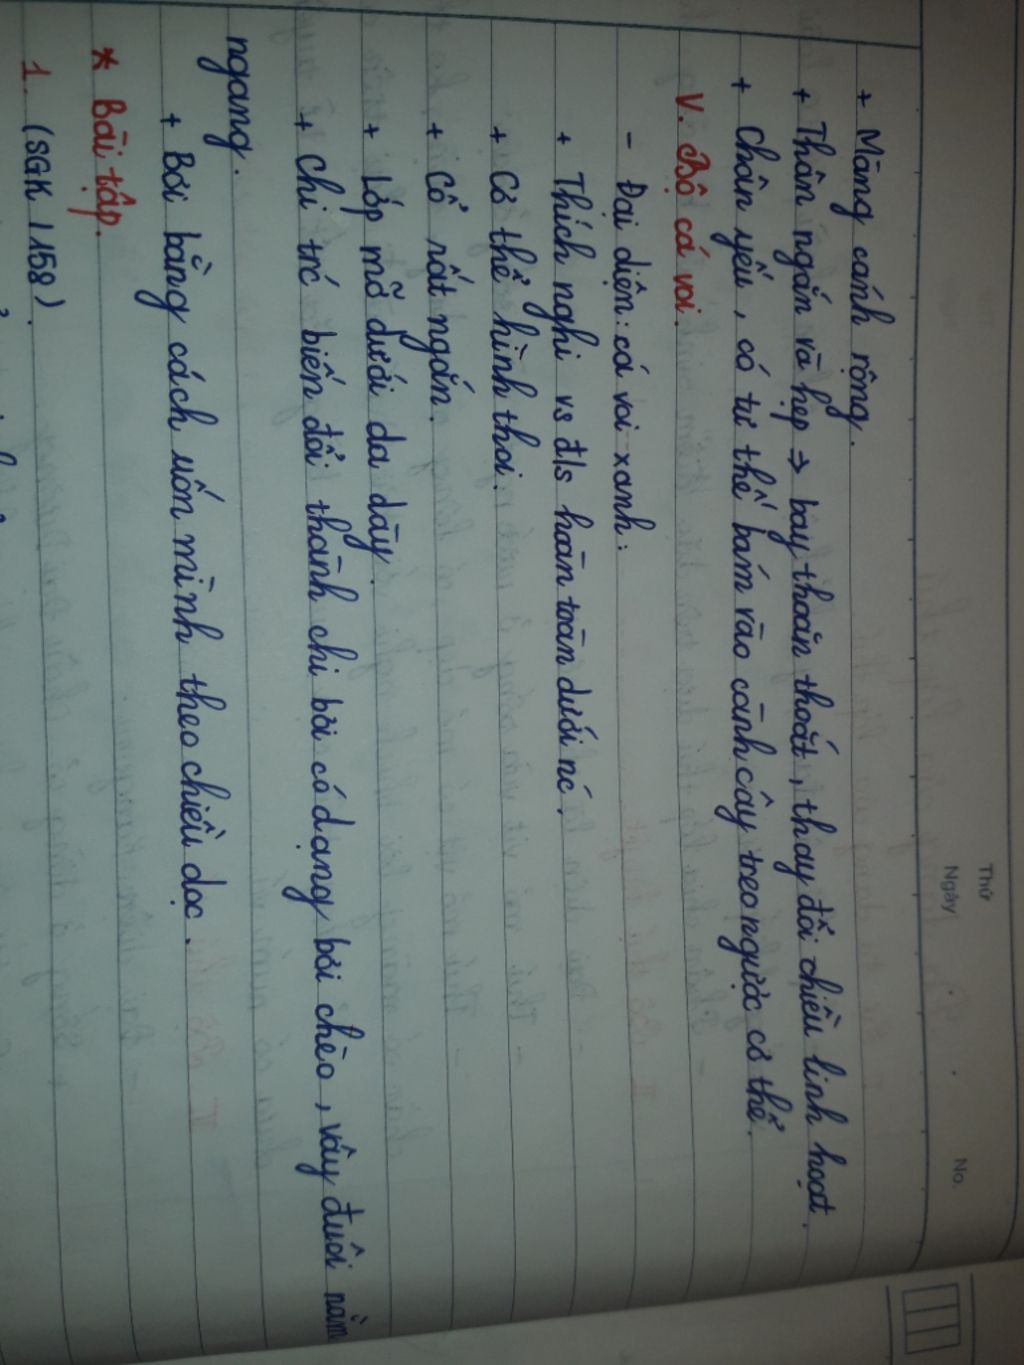 Thứ
Ngày
No.
+ Màng cánh rộng.
+ Thân ngắn và hẹp ⇒ bay thoăn thoắt, thay đổi chiều linh hoạt.
+ Chân yếu, có tư thế bám vào cành cây treo ngược cơ thể.
V. Bộ cá voi.
- Đại diện: cá voi xanh:
+ Thích nghi vs đ/s hoàn toàn dưới nc.
+ Cơ thể hình thoi.
+ Cổ rất ngắn.
+ Lớp mỡ dưới da dày.
+ Chi trc biến đổi thành chi bơi có dạng bơi chèo, vây đuôi nằm
ngang.
+ Bơi bằng cách uốn mình theo chiều dọc.
* Bài tập.
1. (SGK / 158).